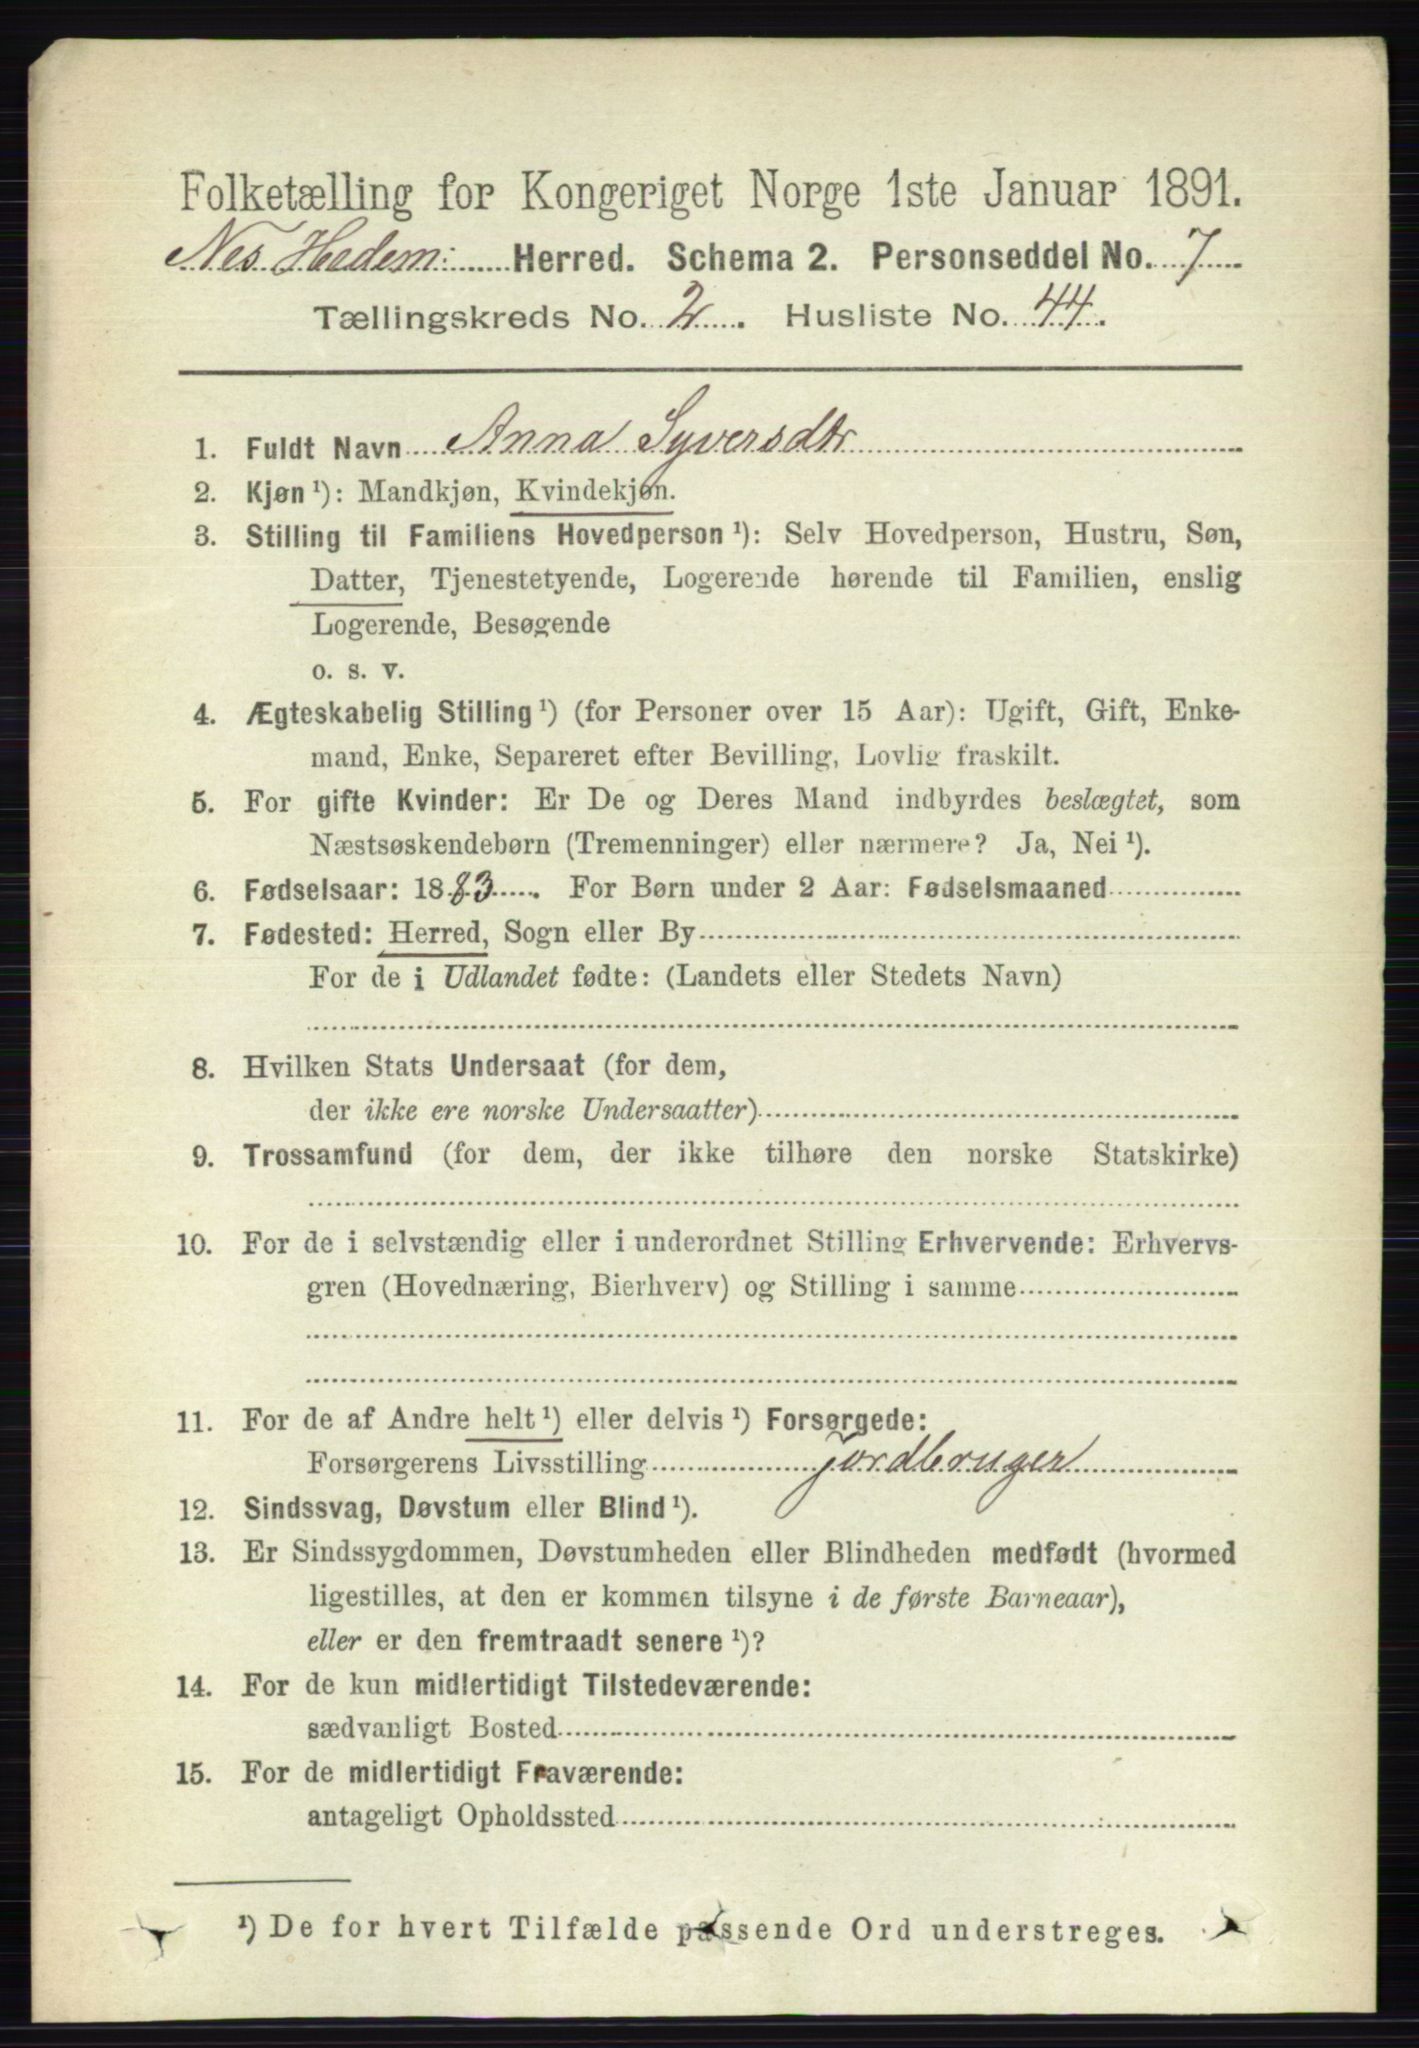 Folketælling for Kongeriget Norge 1ste Januar 1891.
Nes Hedem: Herred. Schema 2. Personseddel No. 7
Tællingskreds No. 2. Husliste No. 44.
1. Fuldt Navn Anna Syversdtr
2. Kjøn ¹): Mandkjøn, Kvindekjøn.
3. Stilling til Familiens Hovedperson ¹): Selv Hovedperson, Hustru, Søn,
Datter, Tjenestetyende, Logerende hørende til Familien, enslig
Logerende, Besøgende
o. s. v.
4. Ægteskabelig Stilling ¹) (for Personer over 15 Aar): Ugift, Gift, Enke-
mand, Enke, Separeret efter Bevilling, Lovlig fraskilt.
5. For gifte Kvinder: Er De og Deres Mand indbyrdes beslægtet, som
Næstsøskendebørn (Tremenninger) eller nærmere? Ja, Nei ¹).
6. Fødselsaar: 1883. For Børn under 2 Aar: Fødselsmaaned
7. Fødested: Herred, Sogn eller By
For de i Udlandet fødte: (Landets eller Stedets Navn)
8. Hvilken Stats Undersaat (for dem,
der ikke ere norske Undersaatter)
9. Trossamfund (for dem, der ikke tilhøre den norske Statskirke)
10. For de i selvstændig eller i underordnet Stilling Erhvervende: Erhvervs-
gren (Hovednæring, Bierhverv) og Stilling i samme
11. For de af Andre helt ¹) eller delvis ¹) Forsørgede:
Forsørgerens Livsstilling Jordbruger
12. Sindssvag, Døvstum eller Blind ¹).
13. Er Sindssygdommen, Døvstumheden eller Blindheden medfødt (hvormed
ligestilles, at den er kommen tilsyne i de første Barneaar),
eller er den fremtraadt senere ¹)?
14. For de kun midlertidigt Tilstedeværende:
sædvanligt Bosted
15. For de midlertidigt Fraværende:
antageligt Opholdssted
¹) De for hvert Tilfælde passende Ord understreges.